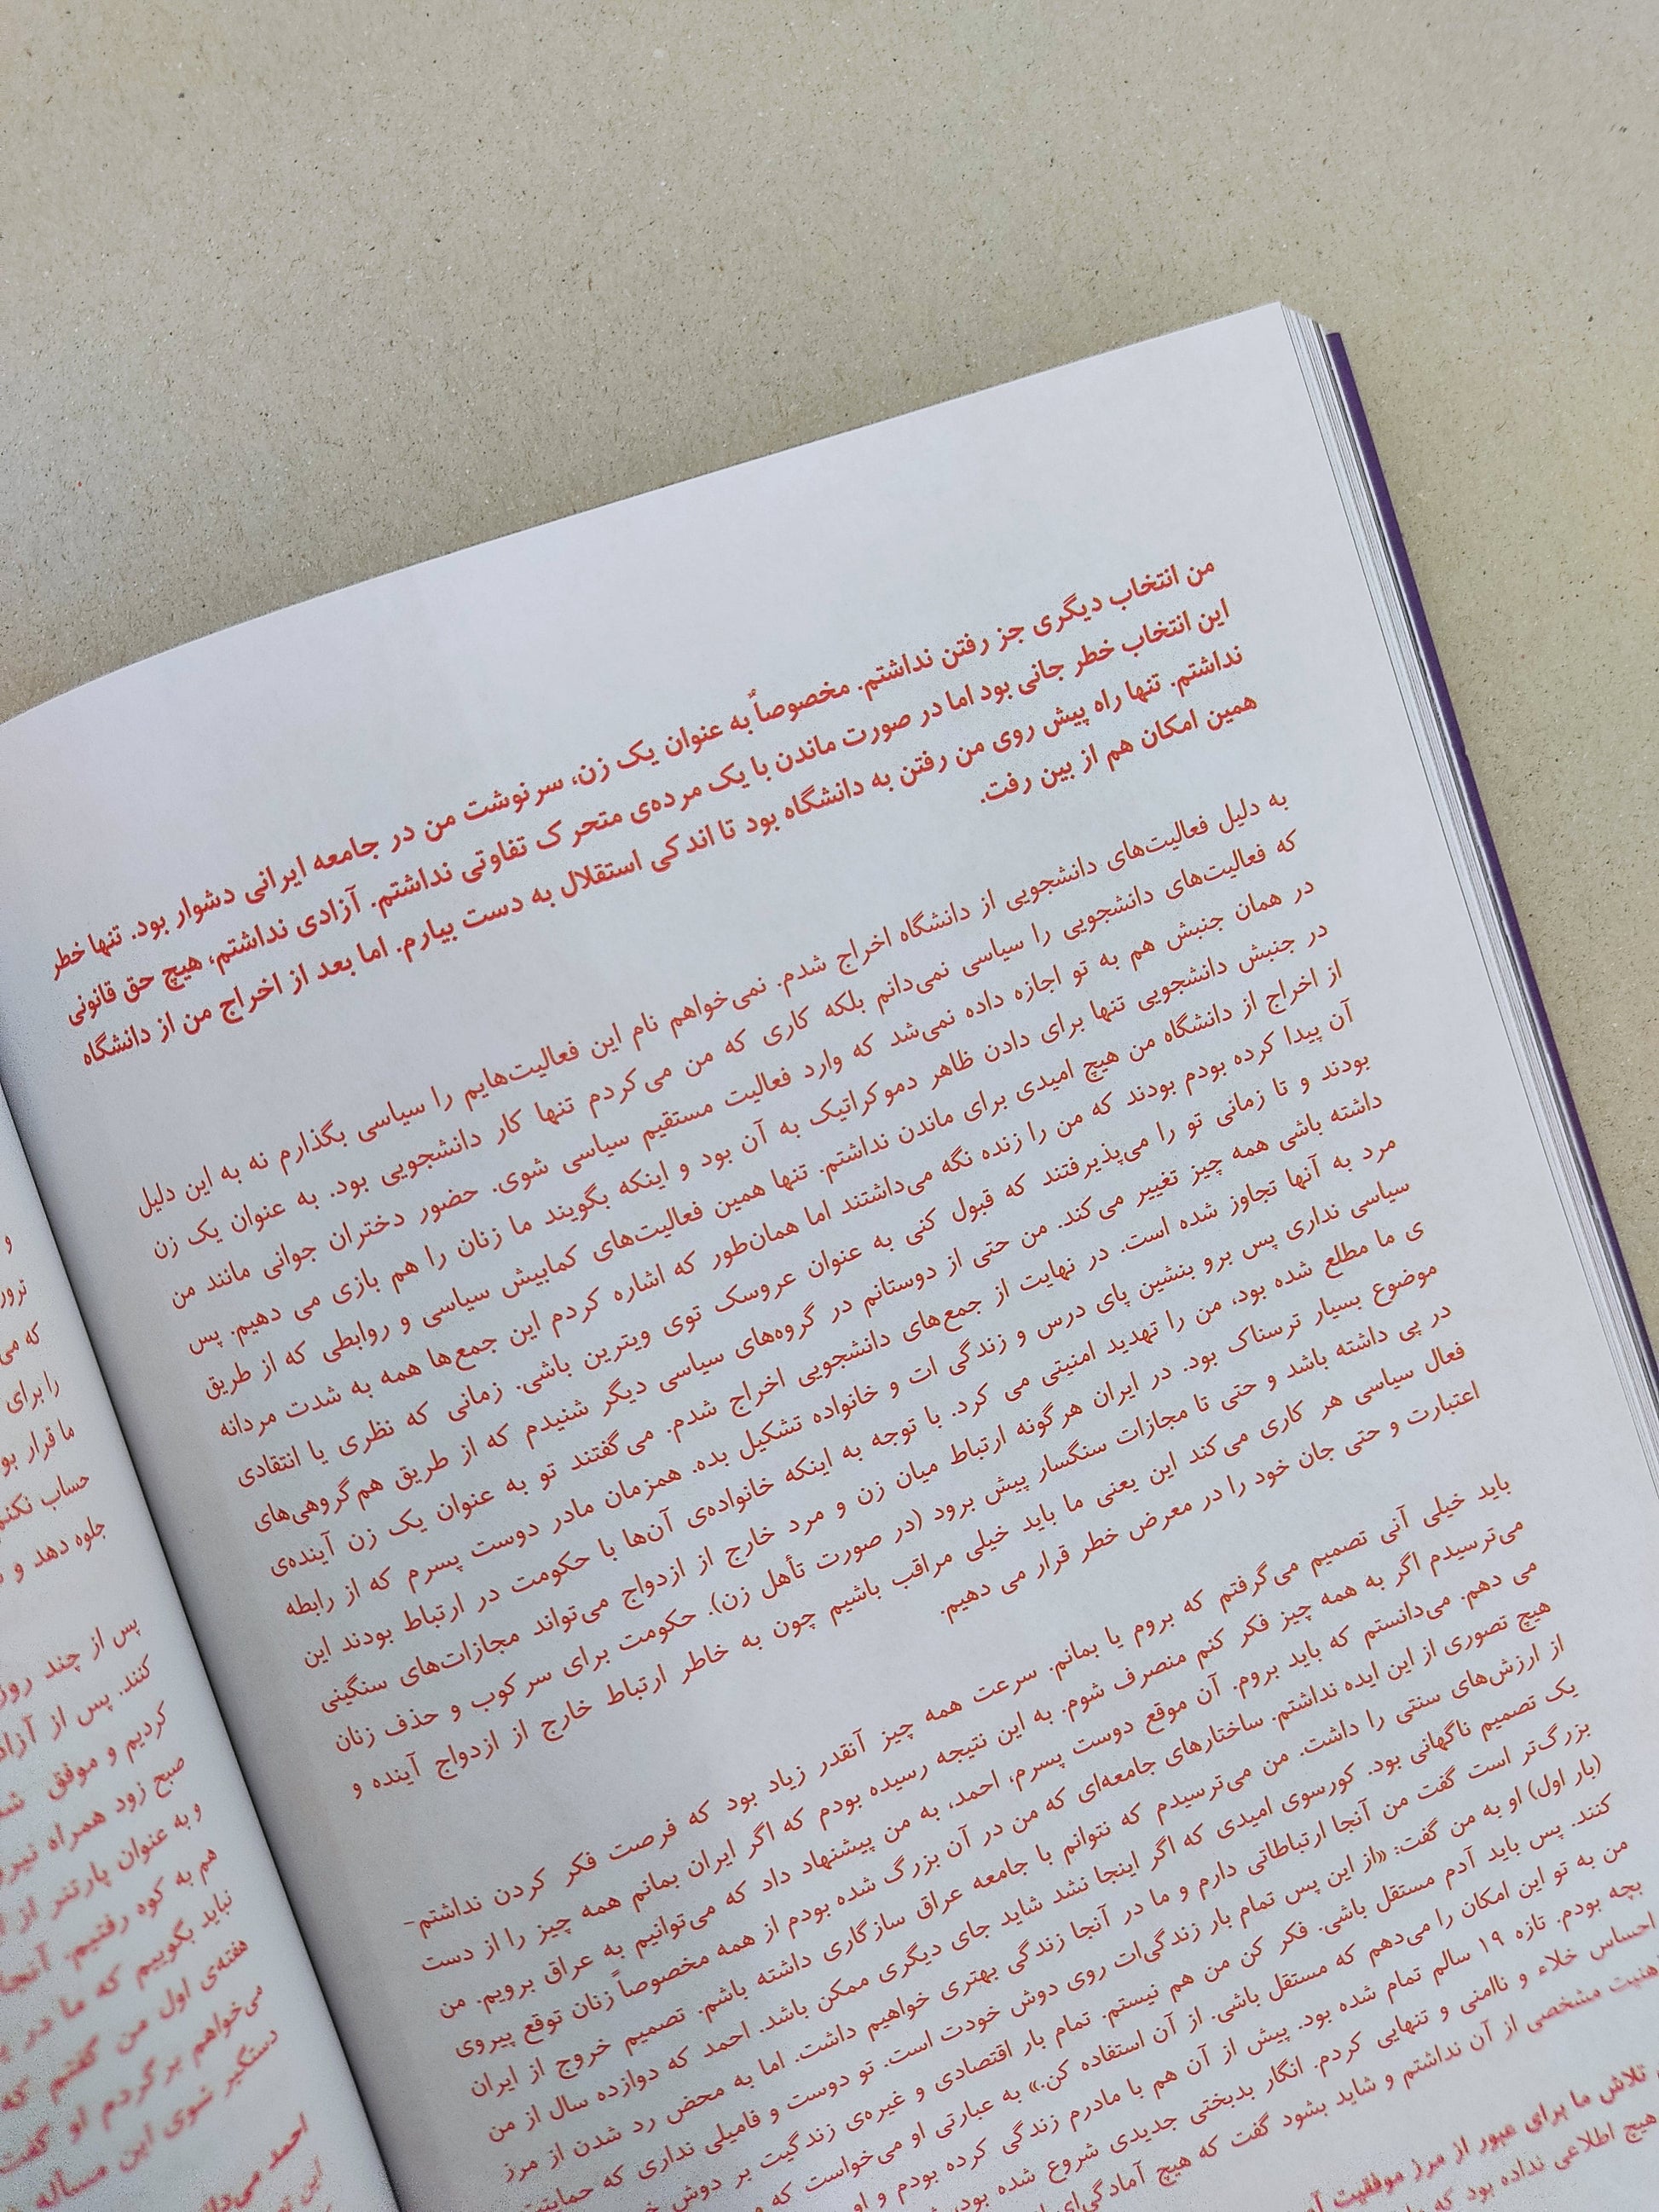 من انتخاب دیگری جز رفتن نداشتم. مخصوصاً به عنوان یک زن، سرنوشت من در جامعه ایرانی دشوار بود. تنها خطر
این انتخاب خطر جانی بود اما در صورت ماندن با یک مرده‌ی متحرک تفاوتی نداشتم. آزادی نداشتم، هیچ حق قانونی
نداشتم. تنها راه پیش روی من رفتن به دانشگاه بود تا اندکی استقلال به دست بیارم. اما بعد از اخراج من از دانشگاه
همین امکان هم از بین رفت.
به دلیل فعالیت‌های دانشجویی از دانشگاه اخراج شدم. نمی‌خواهم نام این فعالیت‌هایم را سیاسی بگذارم نه به این دلیل
که فعالیت‌های دانشجویی را سیاسی نمی‌دانم بلکه کاری که من می‌کردم تنها کار دانشجویی بود. به عنوان یک زن
در همان جنبش هم به تو اجازه داده نمی‌شد که وارد فعالیت مستقیم سیاسی شوی. حضور دختران جوانی مانند من
در جنبش دانشجویی تنها برای دادن ظاهر دموکراتیک به آن بود و اینکه بگویند ما زنان را هم بازی می دهیم. پس
از اخراج از دانشگاه من هیچ امیدی برای ماندن نداشتم. تنها همین فعالیت‌های کمابیش سیاسی و روابطی که از طریق
آن پیدا کرده بودم بودند که من را زنده نگه می‌داشتند اما همان‌طور که اشاره کردم این جمع‌ها همه به شدت مردانه
بودند و تا زمانی تو را می‌پذیرفتند که قبول کنی به عنوان عروسک توی ویترین باشی. زمانی که نظری یا انتقادی
داشته باشی همه چیز تغییر می‌کند. من حتی از دوستانم در گروه‌های سیاسی دیگر شنیدم که از طریق هم گروهی‌های
مرد به آنها تجاوز شده است. در نهایت از جمع‌های دانشجویی اخراج شدم. می‌گفتند تو به عنوان یک زن آینده‌ی
سیاسی نداری پس برو بنشین پای درس و زندگی ات و خانواده تشکیل بده. همزمان مادر دوست پسرم که از رابطه
ی ما مطلع شده بود، من را تهدید امنیتی می کرد. با توجه به اینکه خانواده‌ی آن‌ها با حکومت در ارتباط بودند این
موضوع بسیار ترسناک بود. در ایران هرگونه ارتباط میان زن و مرد خارج از ازدواج می‌تواند مجازات‌های سنگینی
در پی داشته باشد و حتی تا مجازات سنگسار پیش برود (در صورت تأهل زن). حکومت برای سرکوب و حذف زنان
فعال سیاسی هر کاری می‌کند این یعنی ما باید خیلی مراقب باشیم چون به خاطر ارتباط خارج از ازدواج آینده و
اعتبارت و حتی جان خود را در معرض خطر قرار می دهیم.
باید خیلی آنی تصمیم می‌گرفتم که بروم یا بمانم. سرعت همه چیز آنقدر زیاد بود که فرصت فکر کردن نداشتم-
می‌ترسیدم اگر به همه چیز فکر کنم منصرف شوم. به این نتیجه رسیده بودم که اگر ایران بمانم همه چیز را از دست
می دهم. می‌دانستم که باید بروم. آن موقع دوست پسرم، احمد، به من پیشنهاد داد که می‌توانیم به عراق برویم. من
هیچ تصوری از این ایده نداشتم. ساختارهای جامعه‌ای که من در آن بزرگ شده بودم از همه مخصوصاً زنان توقع پیروی
از ارزش‌های سنتی را داشت. من می‌ترسیدم که نتوانم با جامعه عراق سازگاری داشته باشم. تصمیم خروج از ایران
یک تصمیم ناگهانی بود. کورسوی امیدی که اگر اینجا نشد شاید جای دیگری ممکن باشد. احمد که دوازده سال از من
بزرگ‌تر است گفت من آنجا ارتباطاتی دارم و ما در آنجا زندگی بهتری خواهیم داشت. اما به محض رد شدن از مرز
(بار اول) او به من گفت: «از این پس تمام بار زندگی‌ات روی دوش خودت است. تو دوست و فامیلی نداری که حمایتت
کنند. پس باید آدم مستقل باشی. فکر کن من هم نیستم. تمام بار اقتصادی و غیره‌ی زندگیت بر دوش
من به تو این امکان را می‌دهم که مستقل باشی. از آن استفاده کن.» به عبارتی او می‌خواست که
بچه بودم. تازه ۱۹ سالم تمام شده بود. پیش از آن هم با مادرم زندگی کرده بودم و او
احساس خلاء و ناامنی و تنهایی کردم. انگار بدبختی جدیدی شروع شده بود،
مشخصی از آن نداشتم و شاید بشود گفت که هیچ آمادگی‌ای
تلاش ما برای عبور از مرز موفقیت
هیچ اطلاعی نداده بود که
و
که
را برای
ما قرار
حساب
جلوه دهد و
پس از چند روز
کنند. پس از
کردیم و موفق
صبح زود همراه
و به عنوان پارتنر از
هم به کوه رفتیم. آنجا
نباید بگوییم که ما در
هفته‌ی اول من گفتم که
می‌خواهم برگردم او گفت
دستگیر شوی این مساله
احمد